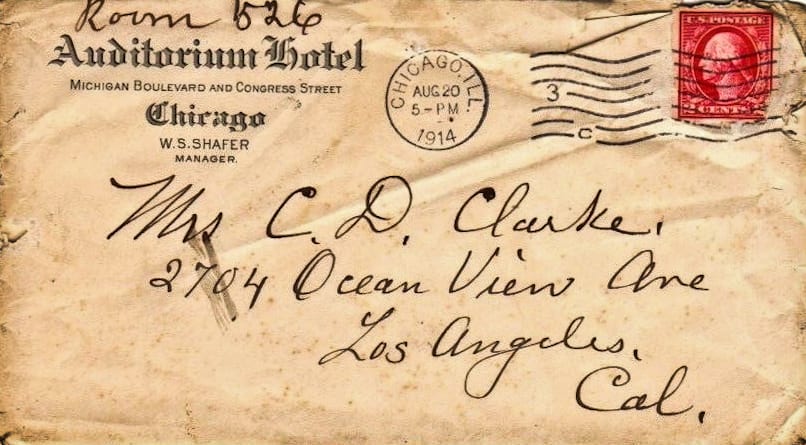 Room 526
Auditorium Hotel
MICHIGAN BOULEVARD AND CONGRESS STREET
Chicago
W.S. SHAFER
MANAGER.
CHICAGO, ILL.
AUG 20
5-PM
1914
3
C
U.S. POSTAGE
2 CENTS 2
Mrs C. D. Clarke.
2704 Ocean View Ave
Los Angeles.
Cal.